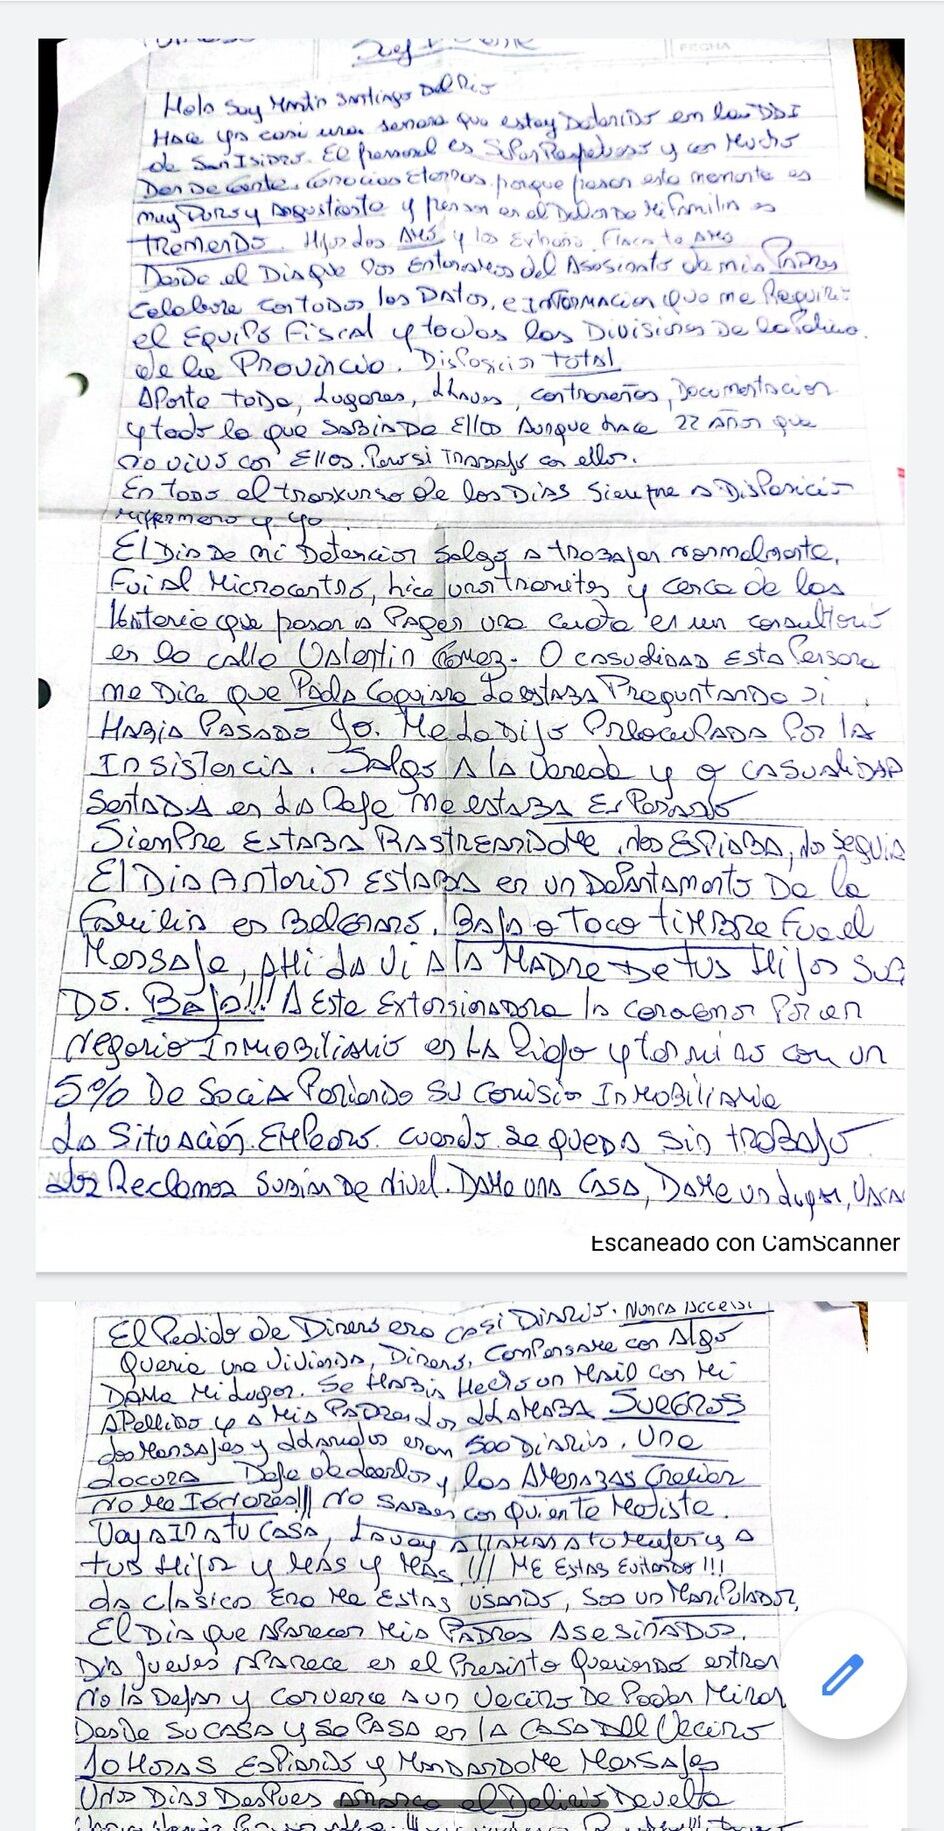 FECHA
Hola Soy Martin Santiago Del Rio
Hace ya casi una semana que estoy Detenido en la DDI
de San Isidro. El personal es Super Respetuoso y con Mucho
Don De Gente. Gracias Eternas. porque pasar este momento es
muy Duro y Angustiante y pensar en el Dolor De Mi Familia es
tremendo. Hijos los AMO y los Extraño, Flaca te AMO
Desde el Dia que nos Enteramos del Asesinato de mis Padres
Colabore con todos los Datos, e Informacion que me Requirio
el Equipo Fiscal y todas las Divisiones De la Policia
de la Provincia. Disposicion total
Aporte todo, Lugares, Llaves, contraseñas, Documentacion
y todo lo que sabia De Ellos Aunque hace 22 años que
no vivo con Ellos. Pero si trabajo con ellos.
En todo el transkurso de los Dias siempre a Disposicion
mi hermano y yo.
El Dia de mi Detencion Salgo a trabajar normalmente.
Fui al Microcentro, hice unos tramites y cerca de las
pasar a Pagar una cuota en un consultorio
en la calle Valentin Gomez. O casualidad esta Persona
me Dice que Paola la estaba Preguntando si
Habia Pasado yo. Me lo Dijo Preocupada Por la
Insistencia. Salgo a la vereda y o casualidad
Sentada en la Reja me estaba Esperando
Siempre estaba Rastreandome, nos Espiaba, nos seguia
El Dia Anterior estaba en un Departamento De la
familia en Belgrano. Bajá o toco timbre fue el
Mensaje, Ahi la vi a la Madre de tus Hijos su
DS. Baja!!! A esta Extorsionadora la conocemos por un
negocio Inmobiliario en La Rioja y termino con un
5% De Socia Poniendo su Comision Inmobiliaria
La Situación Empeoro cuando se queda sin trabajo
Los Reclamos subian De Nivel. Dame una Casa, Dame un Lugar,
Escaneado con CamScanner
El Pedido de Dinero era casi Diario. Nunca Accedi
Queria una Vivienda, Dinero, Compensame con Algo
Dame Mi Lugar. Se Habia Hecho un Mail con Mi
Apellido y a Mis Padres los Llamaba Suegros
Los Mensajes y Llamados eran 500 Diarios. Una
Locura Deje de leerlos y las Amenazas Crecian
No Me Ignores!!! No sabes con Quien te Metiste.
Voy a Ir a tu Casa, La voy a llamar a tu Mujer y a
tus Hijos y Mas y Mas !!! Me Estas Evitando !!!
La Clasica Era Me Estas Usando, Sos un Manipulador,
El Dia que Aparecen Mis Padres Asesinados.
Dia Jueves Aparece en el Presinto Queriendo entrar
No la Dejan y Convence a un Vecino De Poder Mirar
Desde su Casa y se Pasa en la Casa Del Vecino
10 Horas Espiando y Mandandome Mensajes
Unos Dias Despues el Delirio De vuelta